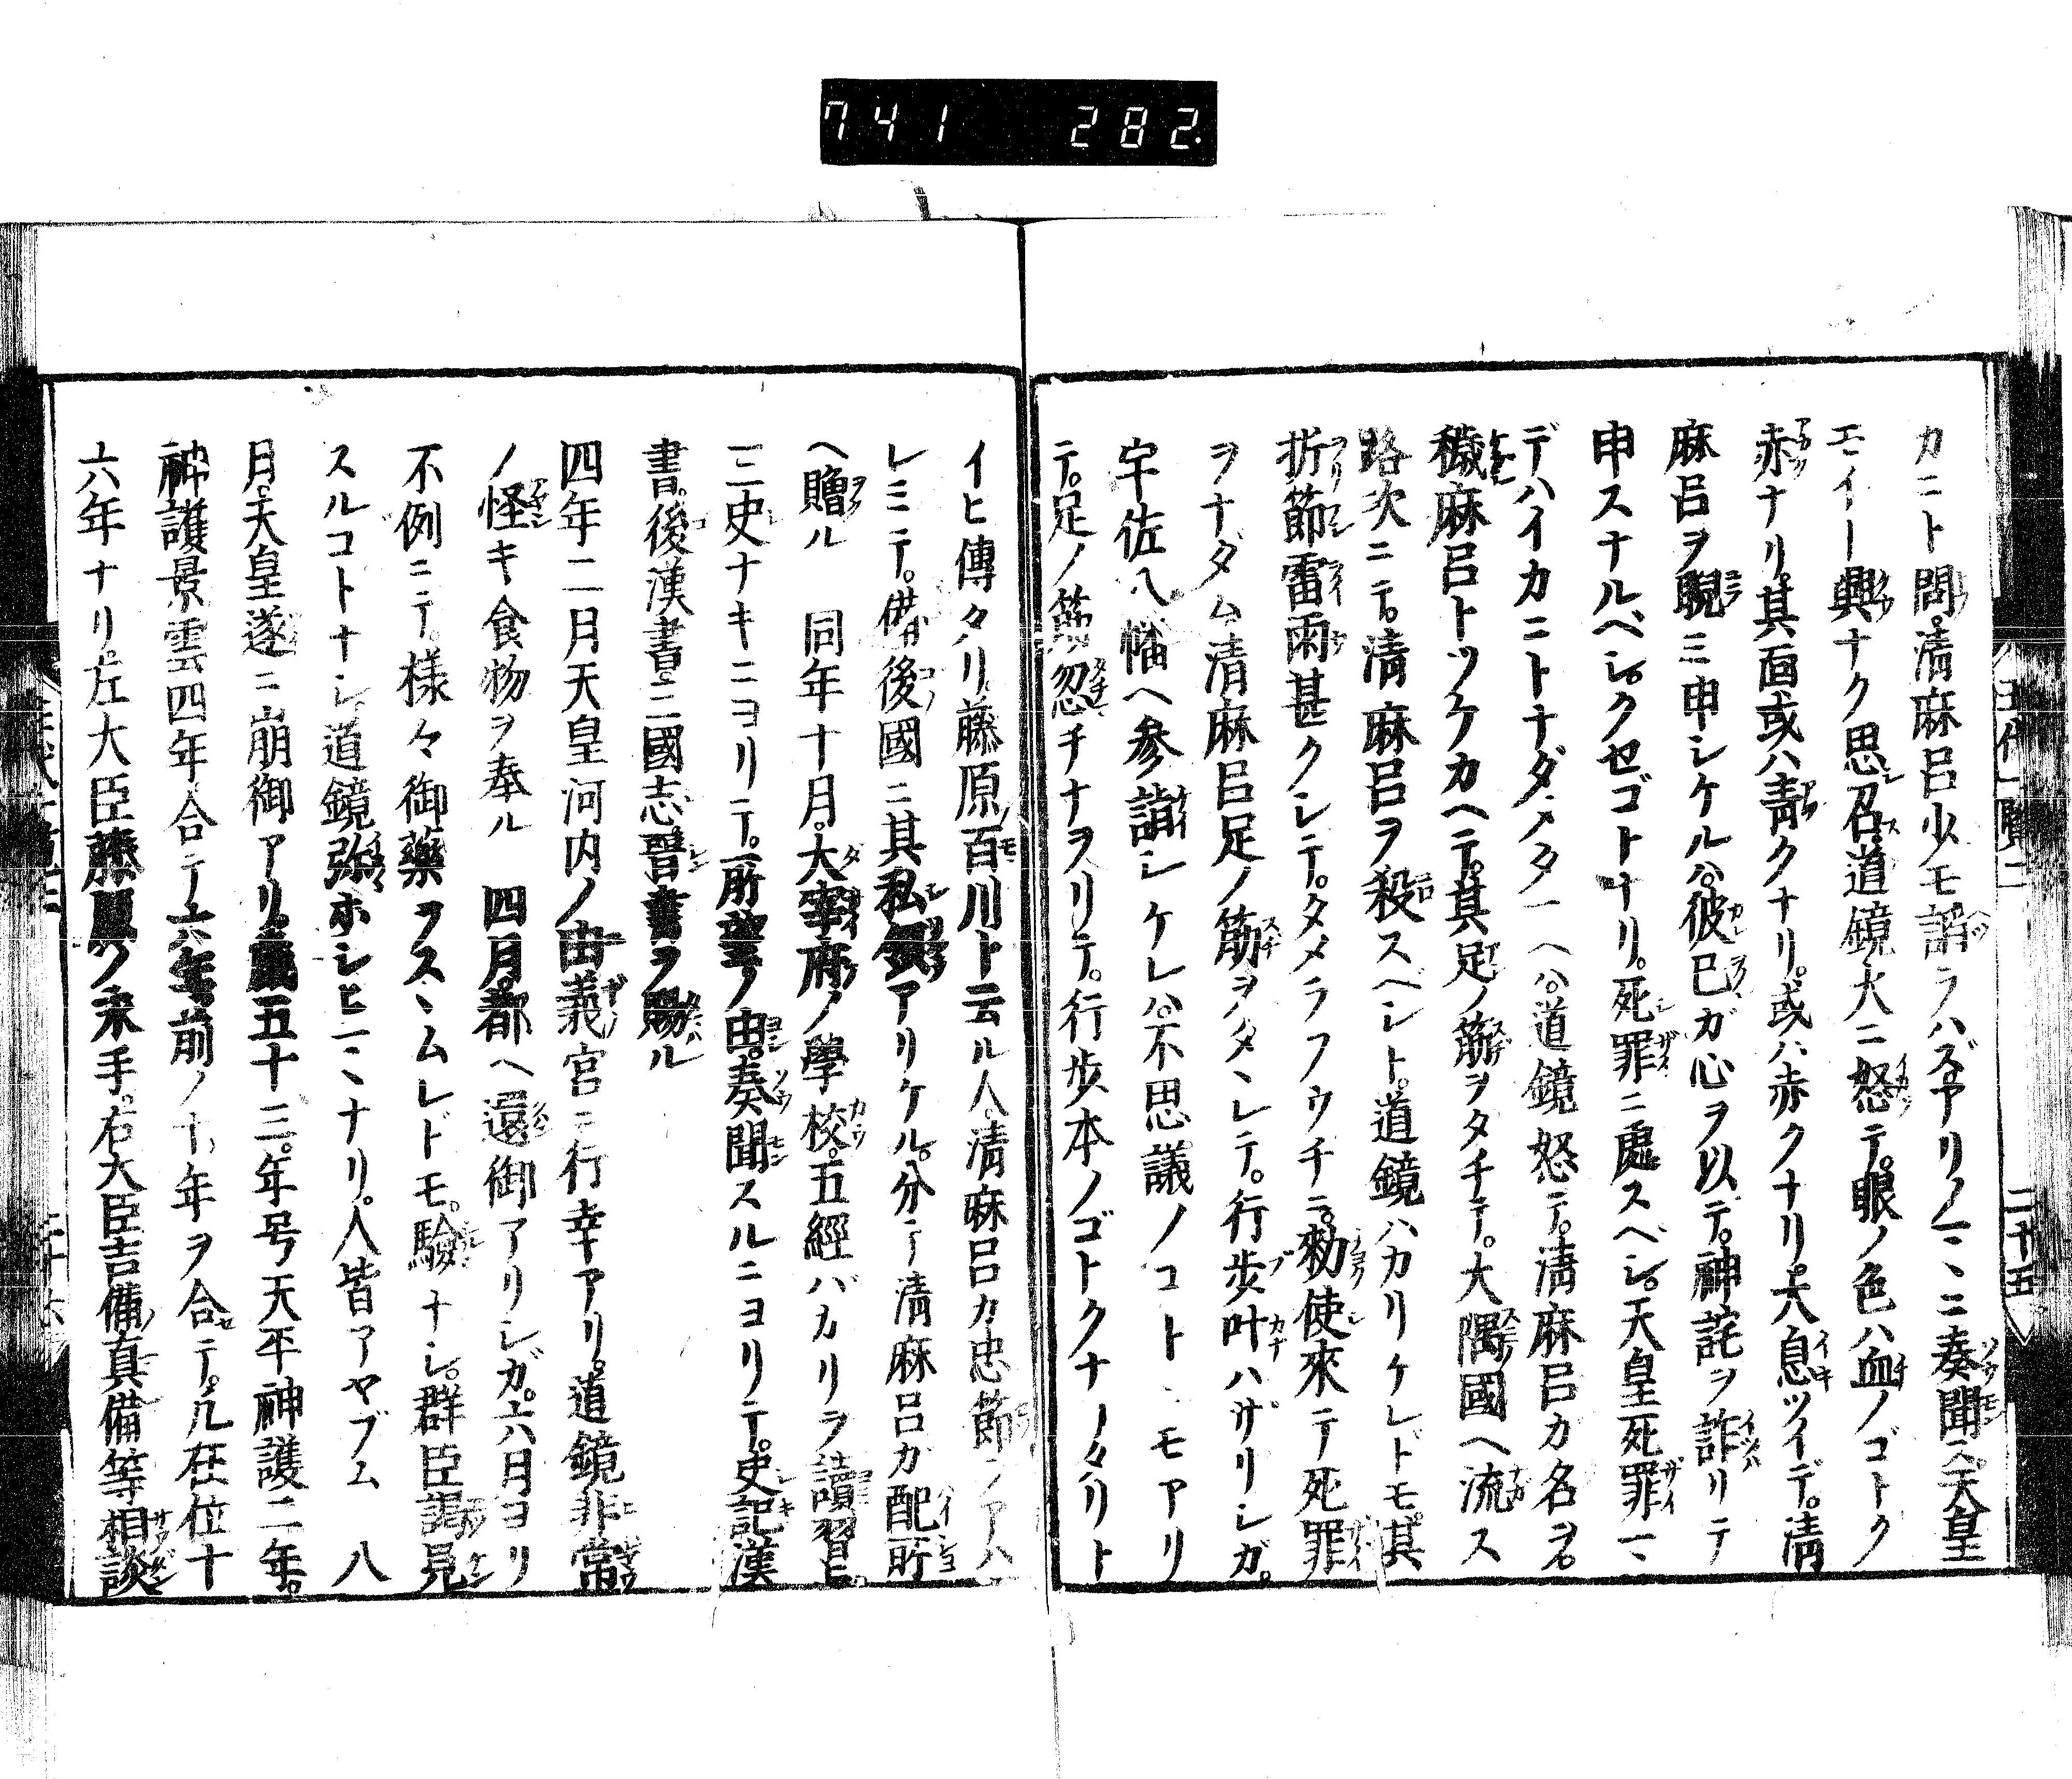 741 282
カニト問。清麻呂少モ諂ラハズアリノマヽニ奏聞ス。天皇
モイト興ナク思召ス道鏡大ニ怒テ。眼ノ色ハ血ノゴトク
赤ナリ。其面或ハ青クナリ。或ハ赤クナリ。大息ツイデ。清
麻呂ヲ睨ミ申シケルハ。彼已ガ心ヲ以テ。神託ヲ詐リテ
申スナルベシ。クセゴトナリ。死罪ニ處スベシ。天皇死罪一ヽ
デハイカニトナダメタマヘハ。道鏡怒テ。清麻呂カ名ヲ。
穢麻呂トツケカヘテ。其足ノ筋ヲタチテ。大隅國ヘ流ス
路次ニテ。清麻呂ヲ殺スベシト。道鏡ハカリケレドモ。其
折節雷雨甚クシテ。タメラフウチニ。勅使來テ死罪
ヲナダム清麻呂足ノ筋ヲタヽレテ。行歩叶ハザリシガ。
宇佐八幡ヘ参詣シケレハ。不思議ノコトヽモアリ
テ。足ノ筋忽チナヲリテ。行歩本ノゴトクナリタリト
イヒ傳タリ。藤原百川ト云ル人。清麻呂カ忠節ヲアハ
レミテ。備後國ニ其私領アリケル。分テ清麻呂ガ配所
ヘ贈ル 同年十月。大宰府ノ學校。五經バカリヲ讀習ヒ
三史ナキニヨリテ。所望ノ由。奏聞スルニヨリテ。史記漢
書。後漢書。三國志晉書ヲ賜ル
四年二月天皇河内ノ由義宮ニ行幸アリ。道鏡非常
ノ怪キ食物ヲ奉ル 四月都ヘ還御アリシガ。六月ヨリ
不例ニテ。様々御藥ヲスヽムレドモ。驗ナシ。群臣謁見
スルコトナシ。道鏡弥ホシヒマヽナリ。人皆アヤブム 八
月。天皇遂ニ崩御アリ。歳五十三。年号天平神護二年。
神護景雲四年合テ六年。前ノ十年ヲ合テ。凡在位十
六年ナリ。左大臣藤原ノ永手。右大臣吉備ノ真備等相談
王代一覧二 二十五